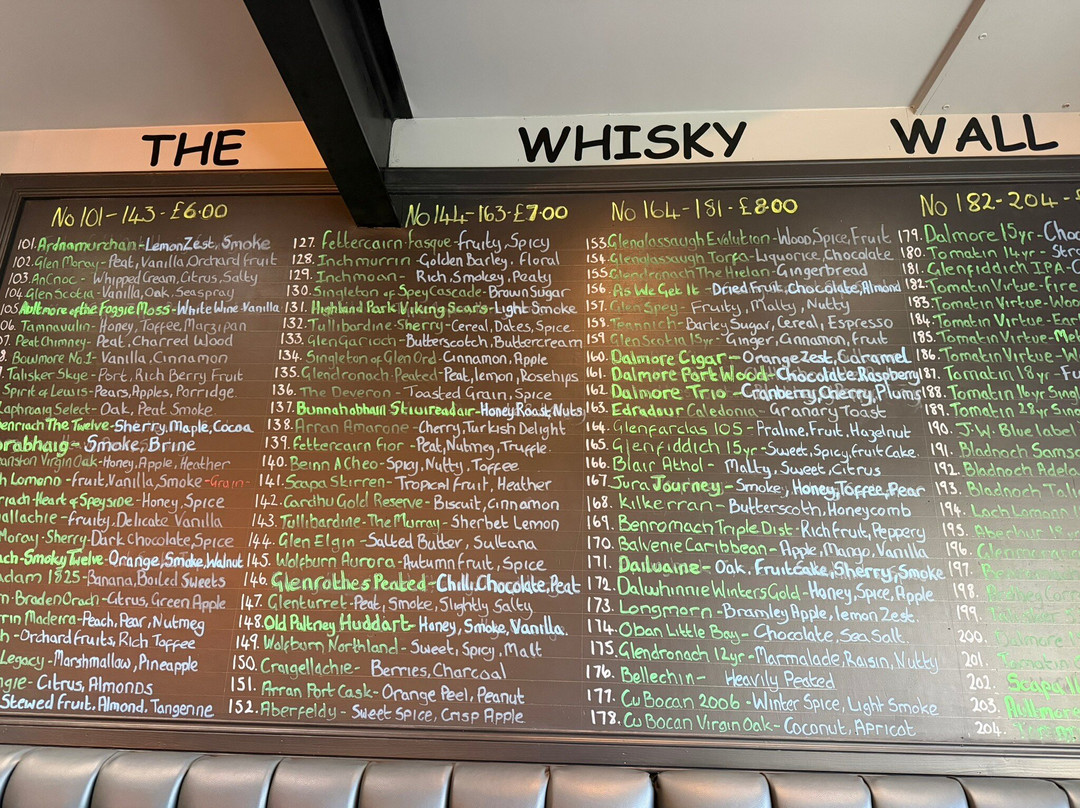 THE WHISKY WALL
No 101-143-£6.00
101. Ardnamurchan-Lemon Zest, Smoke
102. Glen Moray-Peat, Vanilla, Orchard fruit
103. AnCnoc-Whipped Cream, Citrus, Salty
104. Glen Scotia-Vanilla, Oak, Sea spray
105. Aultmore of the Foggie Moss-White Wine-Vanilla
06. Tamnavulin-Honey, Toffee, Marzipan
07. Peat Chimney-Peat, Charred Wood
8. Bowmore No.1-Vanilla, Cinnamon
Talisker Skye-Port, Rich Berry Fruit
Spirit of Lewis-Pears, Apples, Porridge
Laphroaig Select-Oak, Peat Smoke
The Twelve-Sherry, Maple, Cocoa
orabhaig-Smoke, Brine
Virgin Oak-Honey, Apple, Heather
h Lomond-fruit, Vanilla, Smoke-Grain
riach-Heart of Speyside-Honey, Spice
allachie-fruity, Delicate Vanilla
Moray-Sherry-Dark Chocolate, Spice
ach-Smoky Twelve-Orange, Smoke, Walnut
adam 1825-Banana, Boiled Sweets
Braden Orach-Citrus, Green Apple
Madeira-Peach, Pear, Nutmeg
h-Orchard fruits, Rich Toffee
Legacy-Marshmallow, Pineapple
gie-Citrus, Almonds
Stewed Fruit, Almond, Tangerine
No 144-163-£7.00
127. Fettercairn-Fasque-fruity, Spicy
128. Inchmurrin-Golden Barley, Floral
129. Inchmoan-Rich, Smokey, Peaty
130. Singleton of Spey Cascade-Brown Sugar
131. Highland Park Viking Scars-Light Smoke
132. Tullibardine-Sherry-Cereal, Dates, Spice
133. Glen Garioch-Butterscotch, Buttercream
134. Singleton of Glen Ord-Cinnamon, Apple
135. Glendronach-Peated-Peat, lemon, Rosehips
136. The Deveron-Toasted Grain, Spice
137. Bunnahabhain Stiuireadair-Honey Roast, Nuts
138. Arran Amarone-Cherry, Turkish Delight
139. Fettercairn fior-Peat, Nutmeg, Truffle
140. Beinn A Cheo-Spicy, Nutty, Toffee
141. Scapa Skirren-Tropical fruit, Heather
142. Cardhu Gold Reserve-Biscuit, Cinnamon
143. Tullibardine-The Murray-Sherbet Lemon
144. Glen Elgin-Salted Butter, Sultana
145. Wolfburn Aurora-Autumn fruit, Spice
146. Glenrothes Peated-Chilli, Chocolate, Peat
147. Glenturret-Peat, Smoke, Slightly Salty
148. Old Pultney Huddart-Honey, Smoke, Vanilla.
149. Wolfburn Northland-Sweet, Spicy, Malt
150. Craigellachie-Berries, Charcoal
151. Arran Port Cask-Orange Peel, Peanut
152. Aberfeldy-Sweet Spice, Crisp Apple
No 164-181-£8.00
153. Glenglassaugh Evolution-Wood, Spice, Fruit
154. Glenglassaugh Torfa-Liquorice, Chocolate
155. Glendronach The Hielan-Gingerbread
156. As We Get It-Dried Fruit, chocolate, Almond
157. Glen Spey-Fruity, Malty, Nutty
158. Teaninich-Barley Sugar, Cereal, Espresso
159. Glen Scotia 15yr-Ginger, Cinnamon, fruit
160. Dalmore Cigar-Orange Zest, Caramel
161. Dalmore Port Wood-Chocolate, Raspberry
162. Dalmore Trio-Cranberry, Cherry, Plums
163. Edradour Caledonia-Granary Toast
164. Glenfarclas 105-Praline, Fruit, Hazelnut
165. Glenfiddich 15yr-Sweet, Spicy, fruit Cake.
166. Blair Athol-Malty, Sweet, Citrus
167. Jura Journey-Smoke, Honey, Toffee, Pear
168. Kilkerran-Butterscoth, Honeycomb
169. Benromach Triple Dist-Rich fruit, Peppery
170. Balvenie Caribbean-Apple, Mango, Vanilla
171. Dailuaine-Oak, Fruitcake, Sherry, Smoke
172. Dalwhinnie Winters Gold-Honey, Spice, Apple
173. Longmorn-Bramley Apple, lemon Zest.
174. Oban Little Bay-Chocolate, Sea Salt.
175. Glendronach 12yr-Marmalade, Raisin, Nutty
176. Bellechin-Heavily Peated
177. Cu Bocan 2006-Winter Spice, Light Smoke
178. Cu Bocan Virgin Oak-Coconut, Apricot
No 182-204-£
179. Dalmore 15yr-Choc
180. Tomatin 14yr-Str
181. Glenfiddich IPA-C
182. Tomatin Virtue-fire
183. Tomatin Virtue-Woo
184. Tomatin Virtue-Ear
185. Tomatin Virtue-Met
186. Tomatin Virtue-W
187. Tomatin 18yr-Fu
188. Tomatin 16yr Single
189. Tomatin 28yr Sing
190. J.W. Blue label
191. Bladnoch Samsa
192. Bladnoch Adela
193. Bladnoch Tali
194. Loch Lomond
195. Aberlour 18
196. Glenmorangie
197.
198.
199.
200. Dalmore
201. Tomatin
202. Scapa
203. Aultmore
204.